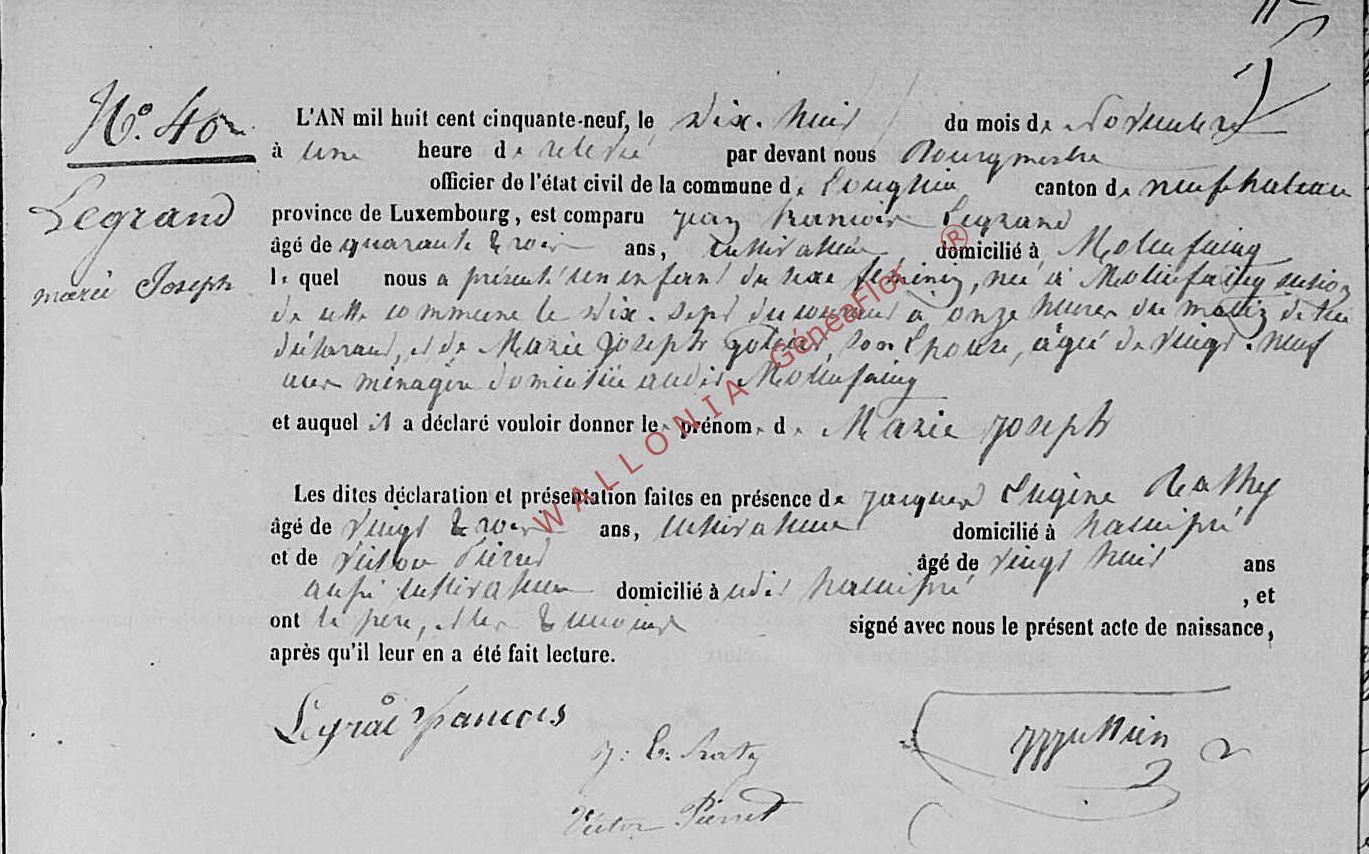 N°. 40
Legrand
marie Joseph
L'AN mil huit cent cinquante-neuf, le dix-huit du mois de Novembre
à une heure de relevée par devant nous Bourgmestre
officier de l'état civil de la commune de Longlier canton de neufchateau
province de Luxembourg, est comparu jean francois Legrand
âgé de quarante trois ans, cultivateur domicilié à Molinfaing
lequel nous a présenté un enfant du sexe féminin, née à Molinfaing section
de cette commune le dix-sept du courant à onze heures du matin de lui
déclarant, et de Marie Joseph son épouse, agée de vingt-neuf
ans ménagère domiciliée audit Molinfaing
et auquel il a déclaré vouloir donner les prénoms de Marie joseph
Les dites déclaration et présentation faites en présence de jacques Eugène
âgé de vingt trois ans, cultivateur domicilié à hamipré
et de Victor Pierret âgé de vingt huit ans
aussi cultivateur domicilié audit hamipré, et
ont le père, et les témoins signé avec nous le présent acte de naissance,
après qu'il leur en a été fait lecture.
Legrad francois
j: E. Raty
Victor Pierret
WALLONIA GénéaFlor ®